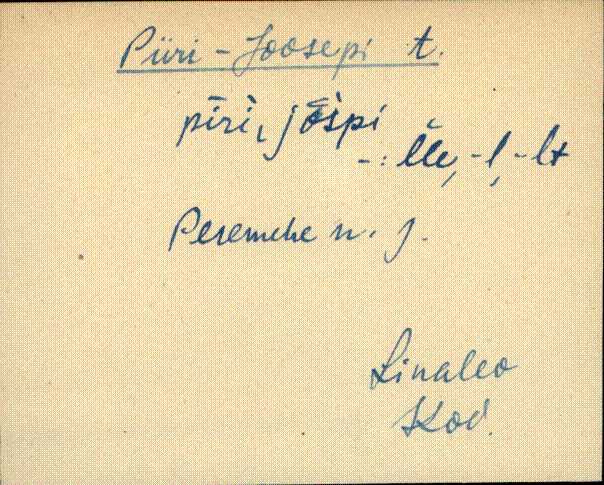 Piiri-Joosepi t.
pīri, jōspi
-: lle, -l, -lt
Peremehe n. j.
Linaleo
Kod.